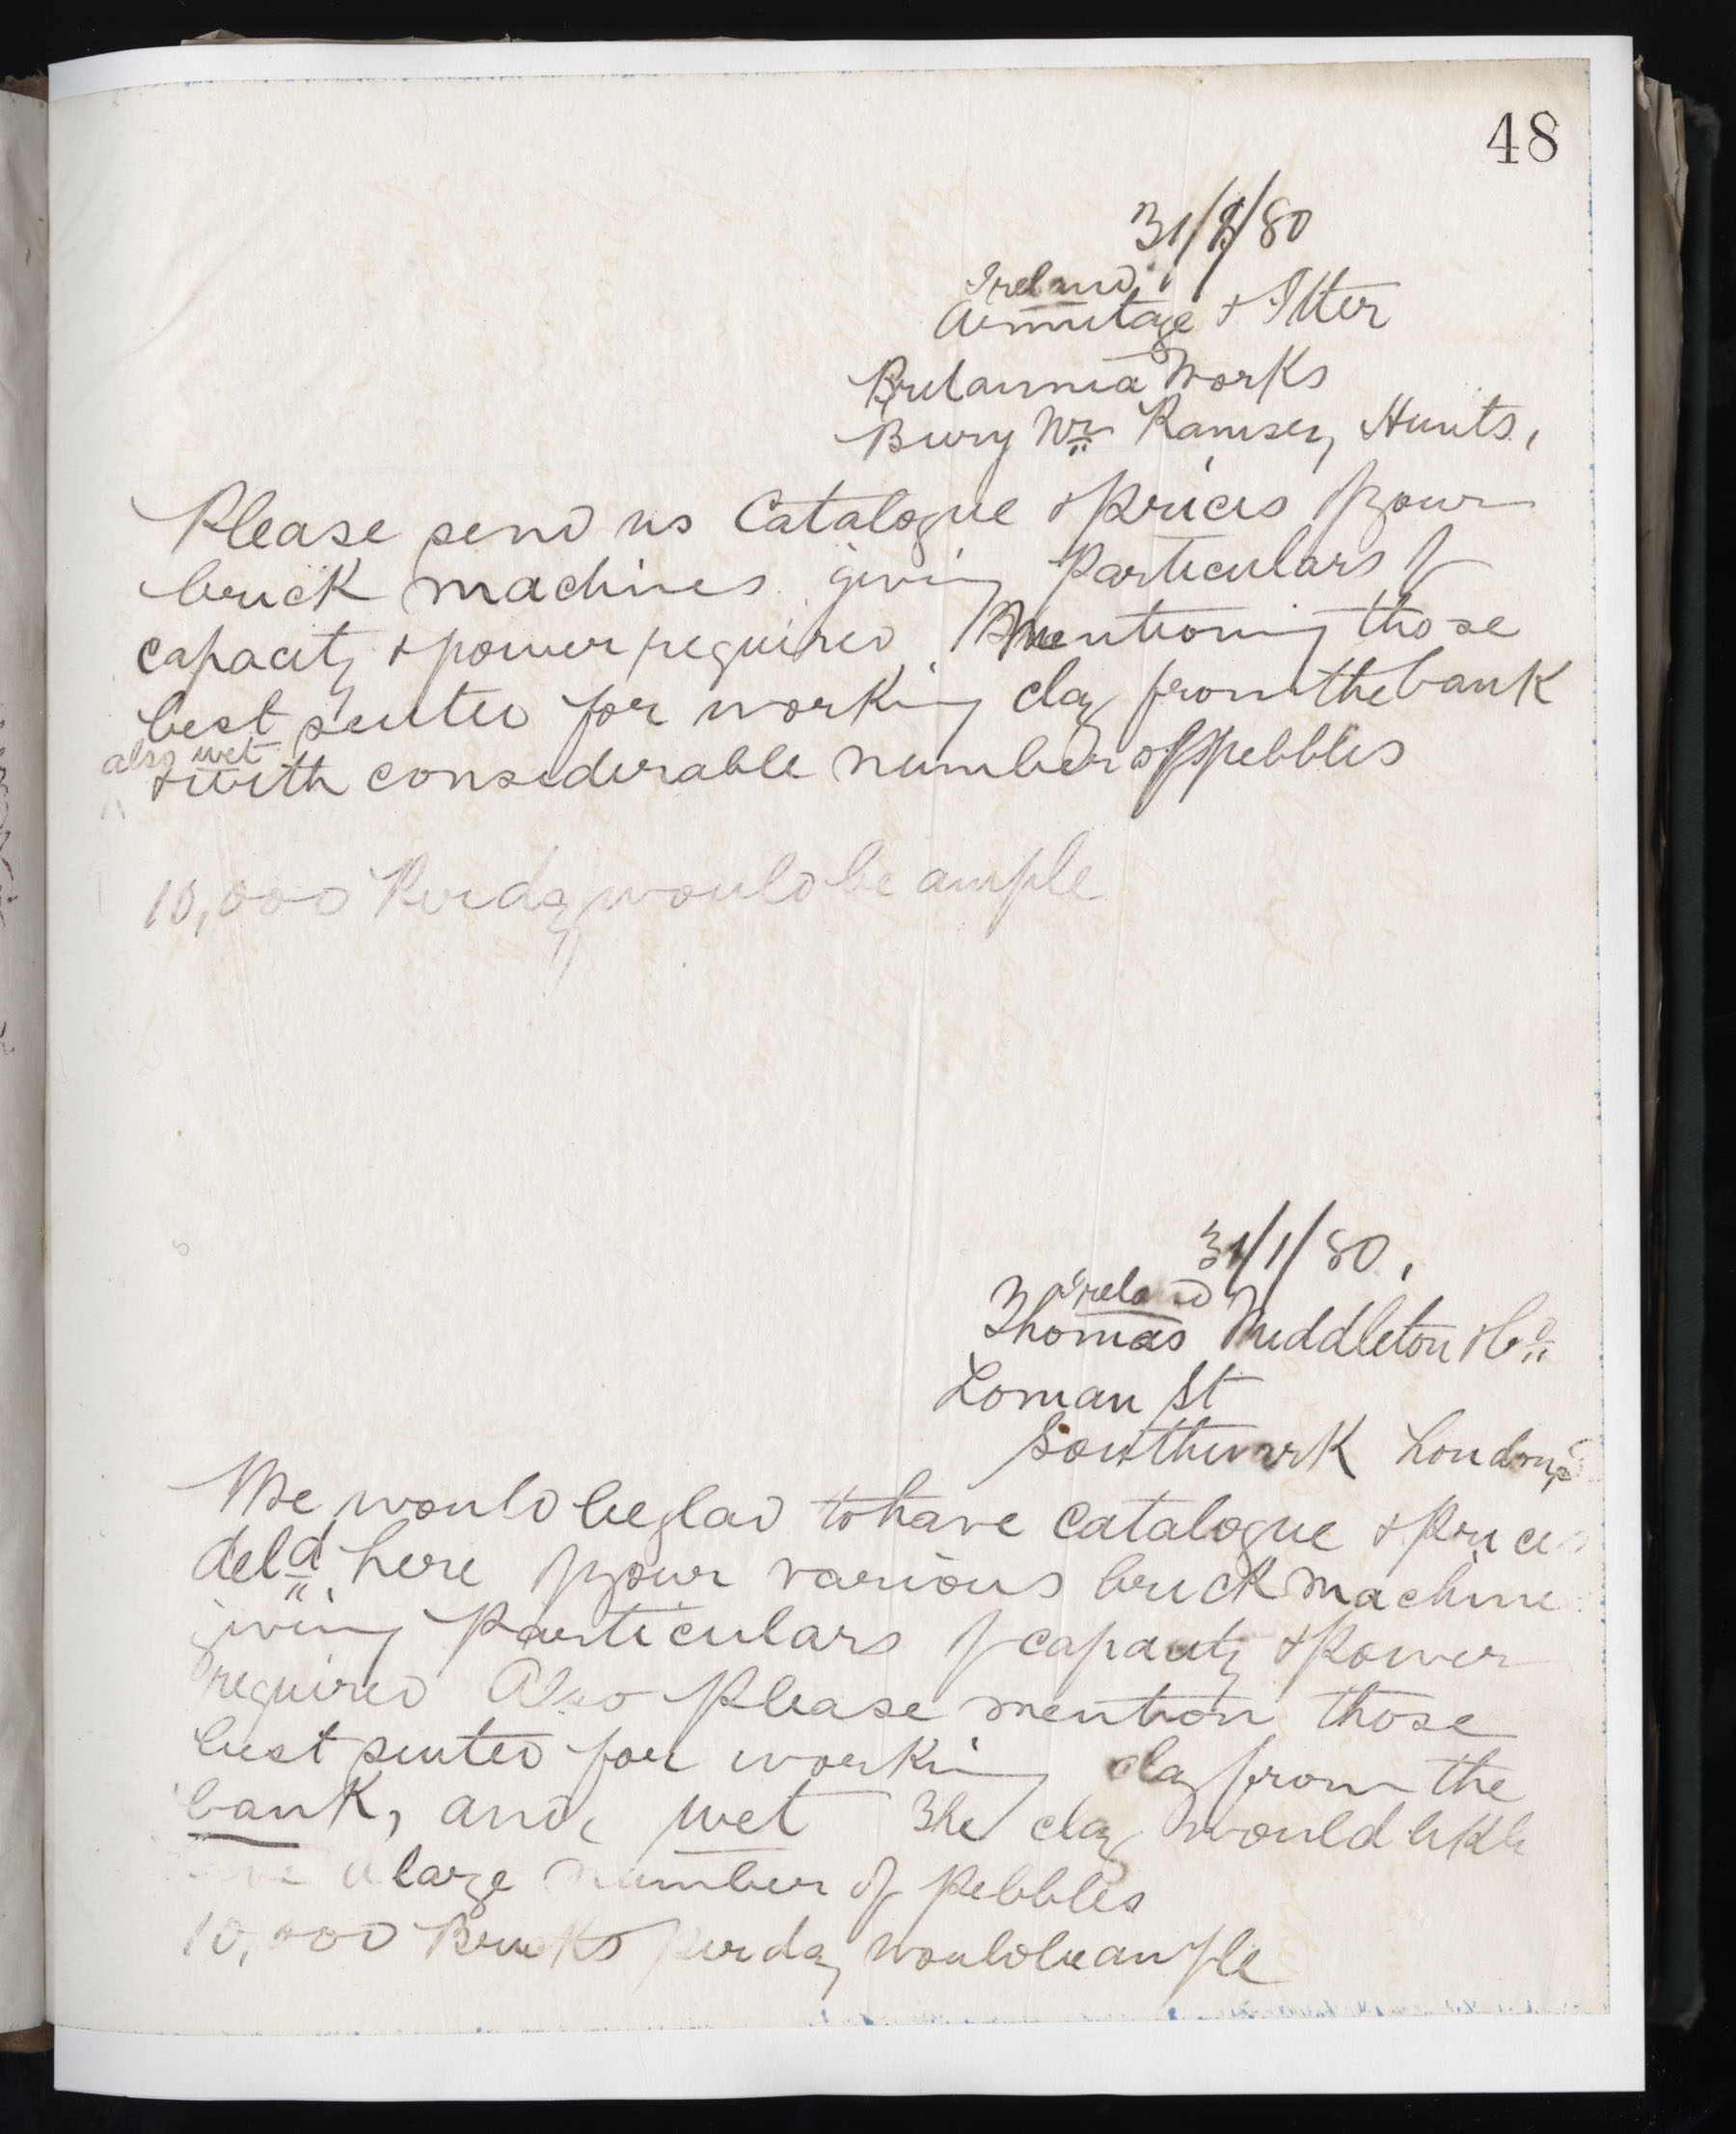 48
31/8/80
Ireland
Armitage & Itter
Britannia Works
Bury Nr Ramsey, Hunts,
Please send us Catalogue & prices of your
brick machines giving particulars of
capacity & power required, mentioning those
best suited for working clay from the bank
also wet
& with considerable number of pebbles
10,000 Per day would be ample
31/1/80,
Ireland
Thomas Middleton & Co
Loman St
Southwark London
We would be glad to have Catalogue & prices
deld here of your various brick machine
giving particulars of capacity & power
required Also please mention those
best suited for working clay from the
bank, and, wet The clay would likely
a large number of pebbles
10,000 Bricks per day would be ample